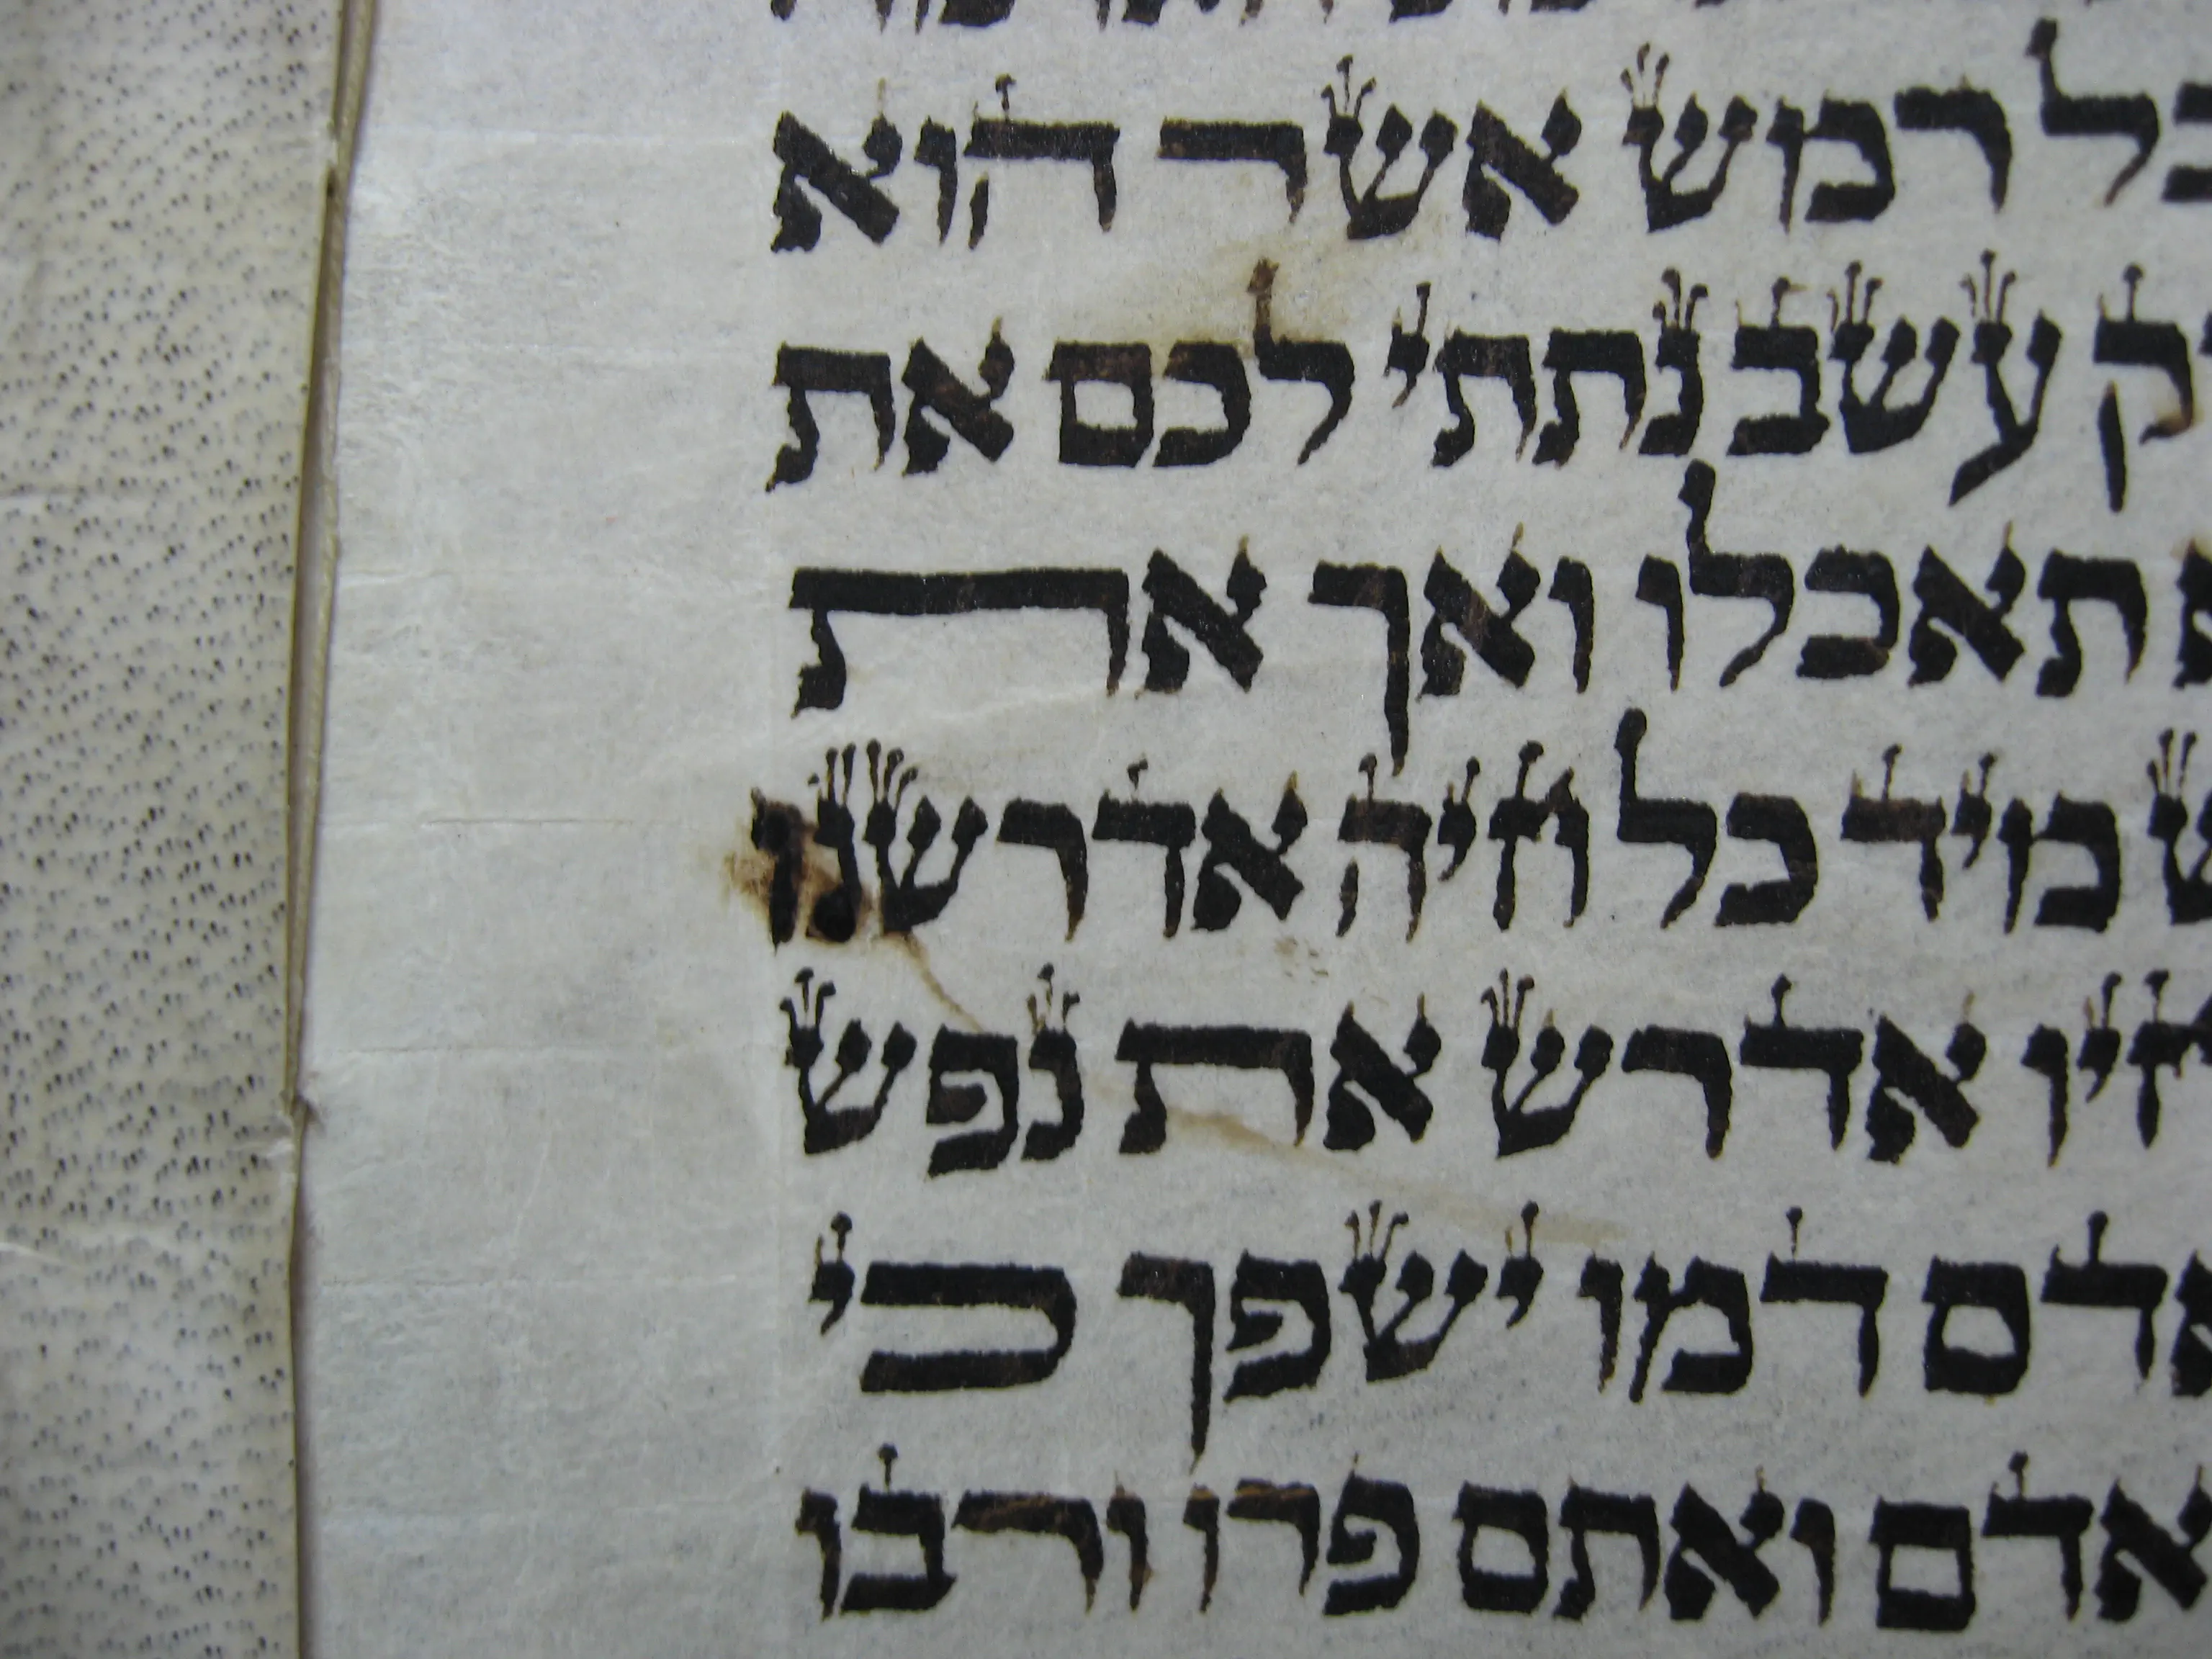 כל רמש אשר הוא
ק עשב נתתי לכם את
תאכלו ואך את
מיד כל חיה אדרשנו
אדרש את נפש
דמו ישפך כי
אדם ואתם פרו ורבו